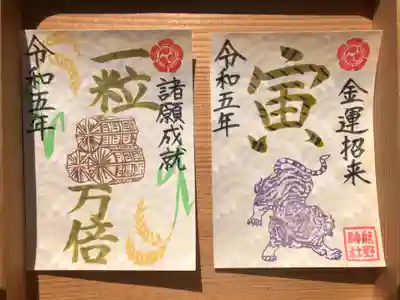 諸願成就
一粒万倍
令和五年
金運招来
寅
令和五年
熊野
神社